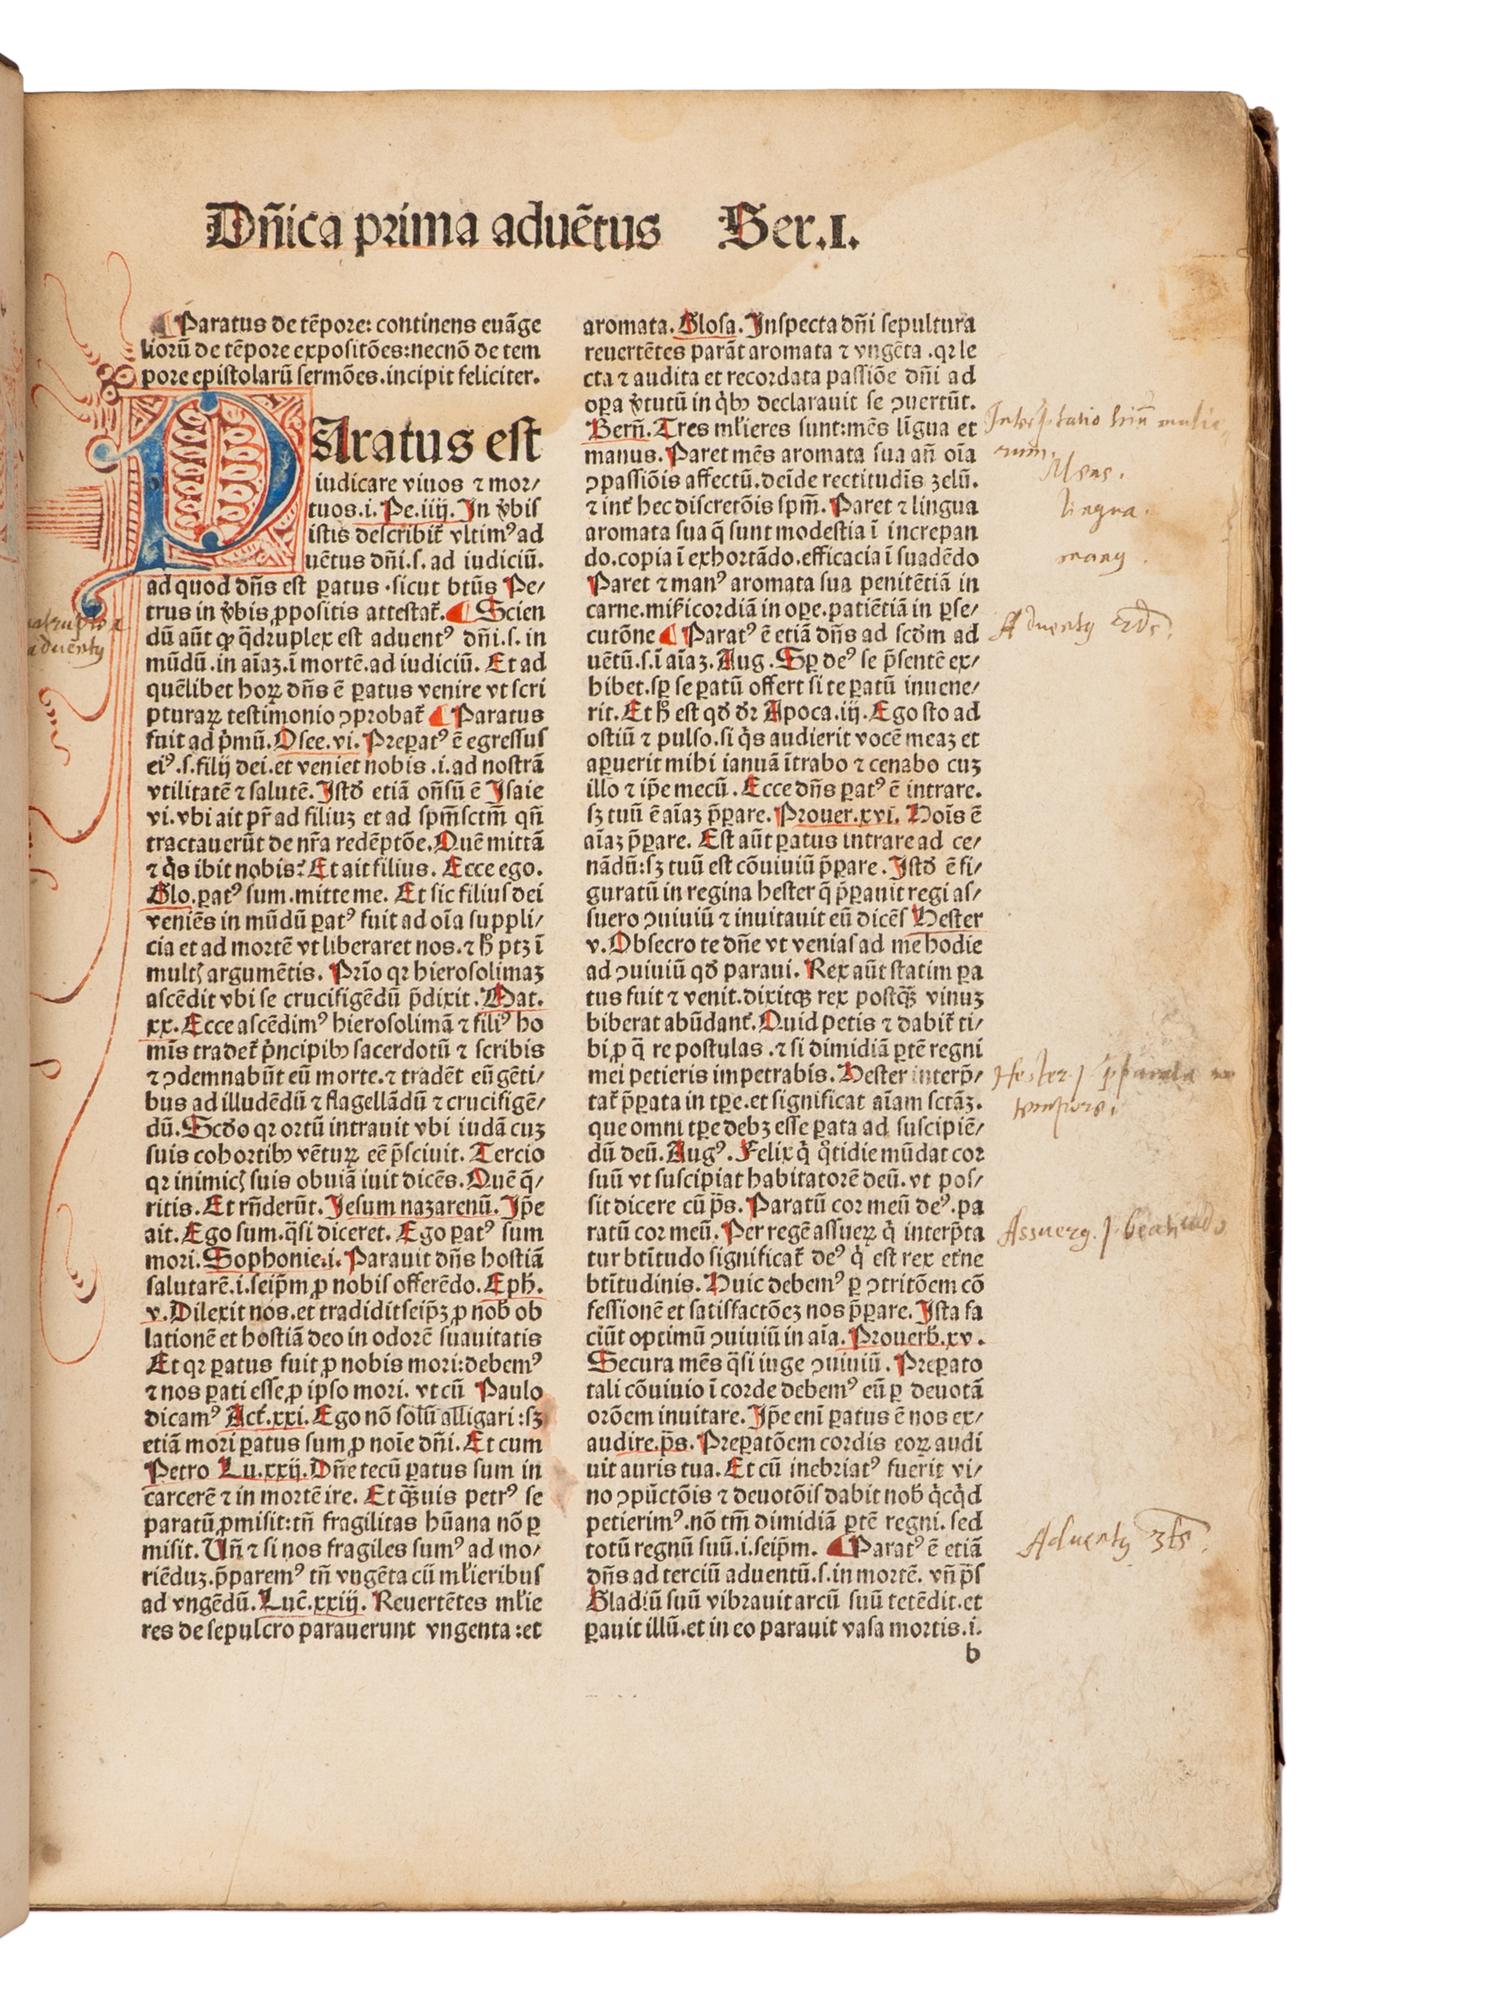 Dñica prima aduẽtus Ser.I.
¶ Paratus de tẽpore: continens euãge
liorũ de tẽpore expositões:necnõ de tem
pore epistolarũ sermões.incipit feliciter.
PAratus est
iudicare viuos ⁊ mor/
tuos.i.Pe.iiij. In v̾bis
istis describit᷑ vltimꝰ ad
uẽtus dñi.s. ad iudiciũ.
ad quod dñs est ꝑatus .sicut btũs Pe/
trus in v̾bis ꝓpositis attestat᷑. ¶ Scien
dũ aũt ꝙ q̃druplex est aduentꝰ dñi.s. in
mũdũ.in aĩaꝫ.ĩ mortẽ.ad iudiciũ. Et ad
quẽlibet hoꝝ dñs ẽ ꝑatus venire vt scri
pturaꝝ testimonio ꝯprobat᷑ ¶ Paratus
fuit ad p̾mũ.Osee.vi. Preꝑatꝰ ẽ egressus
eiꝰ.s.filij dei.et veniet nobis .i.ad nostrã
vtilitatẽ ⁊ salutẽ. Istđ etiã oñsũ ẽ Isaie
vi.vbi ait pr̃ ad filiuꝫ et ad spm̃sctm̃ qñ
tractauerũt de nr̃a redẽptõe.Quẽ mittã
⁊ q̾s ibit nobis? Et ait filius. Ecce ego.
Glo.ꝑatꝰ sum.mitte me. Et sic filius dei
veniẽs in mũdũ ꝑatꝰ fuit ad oĩa suppli/
cia et ad mortẽ vt liberaret nos.⁊ h̾ ptꝫ ĩ
multꝭ argumẽtis. Prĩo qꝛ hierosolimaꝫ
ascẽdit vbi se crucifigẽdũ p̃dixit. Mat.
xx. Ecce ascẽdimꝰ hierosolimã ⁊ filiꝰ ho
mĩs tradet᷑ p̾ncipibꝰ sacerdotũ ⁊ scribis
⁊ ꝯdemnabũt eũ morte.⁊ tradẽt eũ gẽti/
bus ad illudẽdũ ⁊ flagellãdũ ⁊ crucifigẽ/
dũ.Scđo qꝛ ortũ intrauit vbi iudã cuꝫ
suis cohortibꝰ vẽtuꝝ eẽ p̃sciuit. Tercio
qꝛ inimicꝭ suis obuiã iuit dicẽs.Quẽ q̃/
ritis. Et rñderũt. Iesum nazarenũ. Ip̃e
ait. Ego sum.q̃si diceret. Ego ꝑatꝰ sum
mori. Sophonie.i. Parauit dñs hostiã
salutarẽ.i.seip̃m ꝓ nobis offerẽdo. Eph̾.
v. Dilexit nos.et tradidit seip̃ꝫ ꝓ nob̾ ob
lationẽ et hostiã deo in odorẽ suauitatis
Et qꝛ ꝑatus fuit ꝓ nobis mori:debemꝰ
⁊ nos ꝑati esse ꝓ ipso mori. vt cũ Paulo
dicamꝰ Act᷑.xxi. Ego nõ solũ alligari :sꝫ
etiã mori ꝑatus sum ꝓ noĩe dñi. Et cum
Petro Lu.xxij.Dñe tecũ ꝑatus sum in
carcerẽ ⁊ in mortẽ ire. Et q̃ꝫuis petrꝰ se
paratũ ꝓmisit:tñ fragilitas hũana nõ ꝑ
misit. Uñ ⁊ si nos fragiles sumꝰ ad mo/
riẽduꝫ.p̃paremꝰ tñ vngẽta cũ ml̾ieribus
ad vngẽdũ. Luc̃.xxiij. Reuertẽtes ml̾ie
res de sepulcro parauerunt vngenta :et
aromata. Glosa. Inspecta dñi sepultura
reuertẽtes parãt aromata ⁊ vngẽta .qꝛ le
cta ⁊ audita et recordata passiõe dñi ad
oꝑa v̾tutũ in q̾bꝰ declarauit se ꝯuertũt.
Berñ.Tres ml̾ieres sunt:mẽs lĩgua et
manus. Paret mẽs aromata sua añ oĩa
ꝯpassiõis affectũ.deĩde rectitudĩs zelũ.
⁊ int᷑ hec discretõis spm̃. Paret ⁊ lingua
aromata sua q̃ sunt modestia ĩ increpan
do.copia ĩ exhortãdo.efficacia ĩ suadẽdo
Paret ⁊ manꝰ aromata sua penitẽtiã in
carne.mi̾sicordiã in oꝑe.patiẽtiã in ꝑse/
cutõne ¶ Paratꝰ ẽ etiã dñs ad scđm ad
uẽtũ.s.ĩ aĩaꝫ. Aug. Sꝑ deꝰ se p̃sentẽ ex/
hibet.sꝑ se ꝑatũ offert si te ꝑatũ inuene/
rit. Et h̾ est qđ dr̃ Apoca.iij. Ego sto ad
ostiũ ⁊ pulso.si q̾s audierit vocẽ meaꝫ et
aꝑuerit mihi ianuã ĩtrabo ⁊ cenabo cuꝫ
illo ⁊ ip̃e mecũ. Ecce dñs ꝑatꝰ ẽ intrare.
sꝫ tuũ ẽ aĩaꝫ p̃ꝑare. Prouer.xvi. Hoĩs ẽ
aĩaꝫ p̃ꝑare. Est aũt ꝑatus intrare ad ce/
nãdũ:sꝫ tuũ est cõuiuiũ p̃ꝑare. Istđ ẽ fi/
guratũ in regina hester q̃ p̃ꝑauit regi as/
suero ꝯuiuiũ ⁊ inuitauit eũ dicẽs Hester
v. Obsecro te dñe vt venias ad me hodie
ad ꝯuiuiũ qđ paraui. Rex aũt statim ꝑa
tus fuit ⁊ venit.dixitqꝫ rex postq̃ꝫ vinuꝫ
biberat abũdant᷑. Quid petis ⁊ dabit᷑ ti/
bi ꝓ q̃ re postulas .⁊ si dimidiã ꝑtẽ regni
mei petieris impetrabis. Hester interp̃/
tat᷑ p̃ꝑata in tꝑe.et significat aĩam sctãꝫ.
que omni tꝑe debꝫ esse ꝑata ad suscipiẽ/
dũ deũ. Augꝰ. Felix q̾ q̊tidie mũdat cor
suũ vt suscipiat habitatorẽ deũ.vt pos/
sit dicere cũ p̃s. Paratũ cor meũ deꝰ.pa
ratũ cor meũ. Per regẽ assueꝝ q̾ interp̃ta
tur bt̃itudo significat᷑ deꝰ q̾ est rex et᷑ne
bt̃itudinis. Huic debemꝰ ꝑ ꝯtritõem cõ
fessionẽ et satisfactõeꝫ nos p̃ꝑare. Ista fa
ciũt optimũ ꝯuiuiũ in aĩa. Prouerb̾.xv.
Secura mẽs q̃si iuge ꝯuiuiũ. Preꝑato
tali cõuiuio ĩ corde debemꝰ eũ ꝑ deuotã
orõem inuitare. Ip̃e enĩ ꝑatus ẽ nos ex/
audire.p̃s. Preꝑatõem cordis eoꝝ audi
uit auris tua. Et cũ inebriatꝰ fuerit vi/
no ꝯpũctõis ⁊ deuotõis dabit nob̾ q̾cq̾d
petierimꝰ.nõ tm̃ dimidiã ꝑtẽ regni. sed
totũ regnũ suũ.i.seip̃m. ¶ Paratꝰ ẽ etiã
dñs ad terciũ aduentũ.s.in mortẽ. vñ p̃s
Gladiũ suũ vibrauit arcũ suũ tetẽdit.et
ꝑauit illũ.et in eo parauit vasa mortis.i.
b
mulie
rum.
Mens.
lingua.
manꝰ
Aduentꝰ 2ds.
Hester
Aduentꝰ 3ts.
aduentꝰ